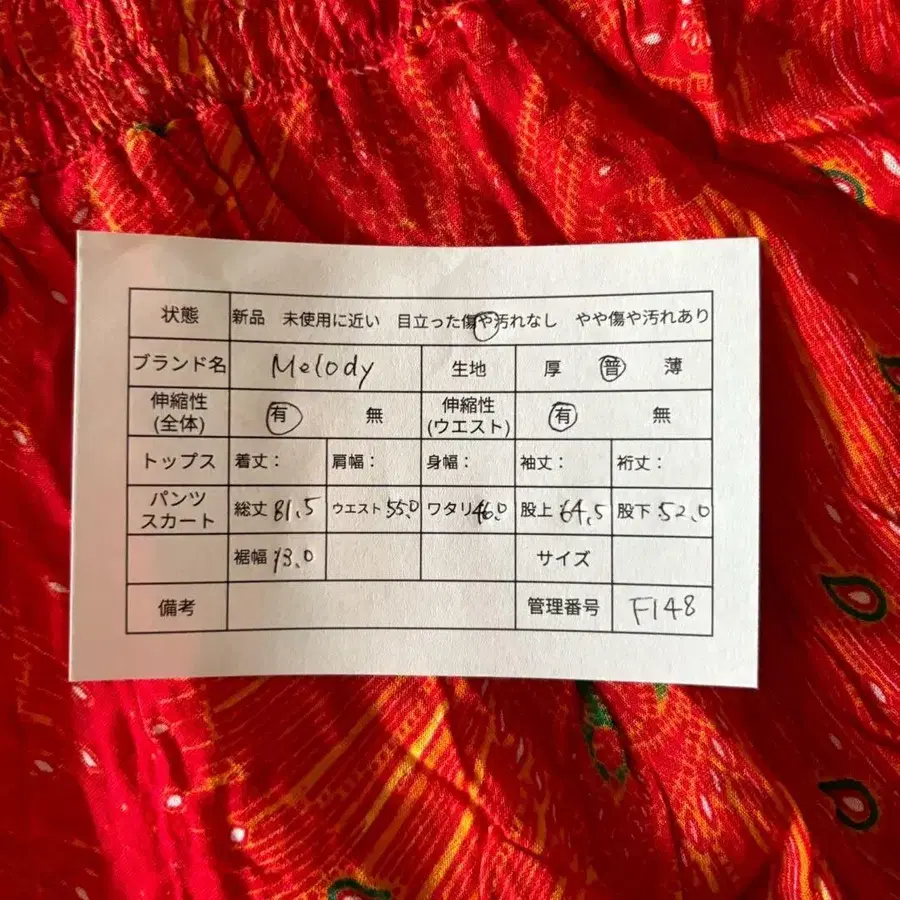 状態 新品 未使用に近い 目立った傷や汚れなし やや傷や汚れあり
ブランド名 Melody 生地 厚 普 薄
伸縮性 (全体) 有 無 伸縮性 (ウエスト) 有 無
トップス 着丈: 肩幅: 身幅: 袖丈: 裄丈:
パンツ スカート 総丈 81.5 ウエスト 55.0 ワタリ 46.0 股上 64.5 股下 52.0
裾幅 13.0 サイズ
備考 管理番号 F148